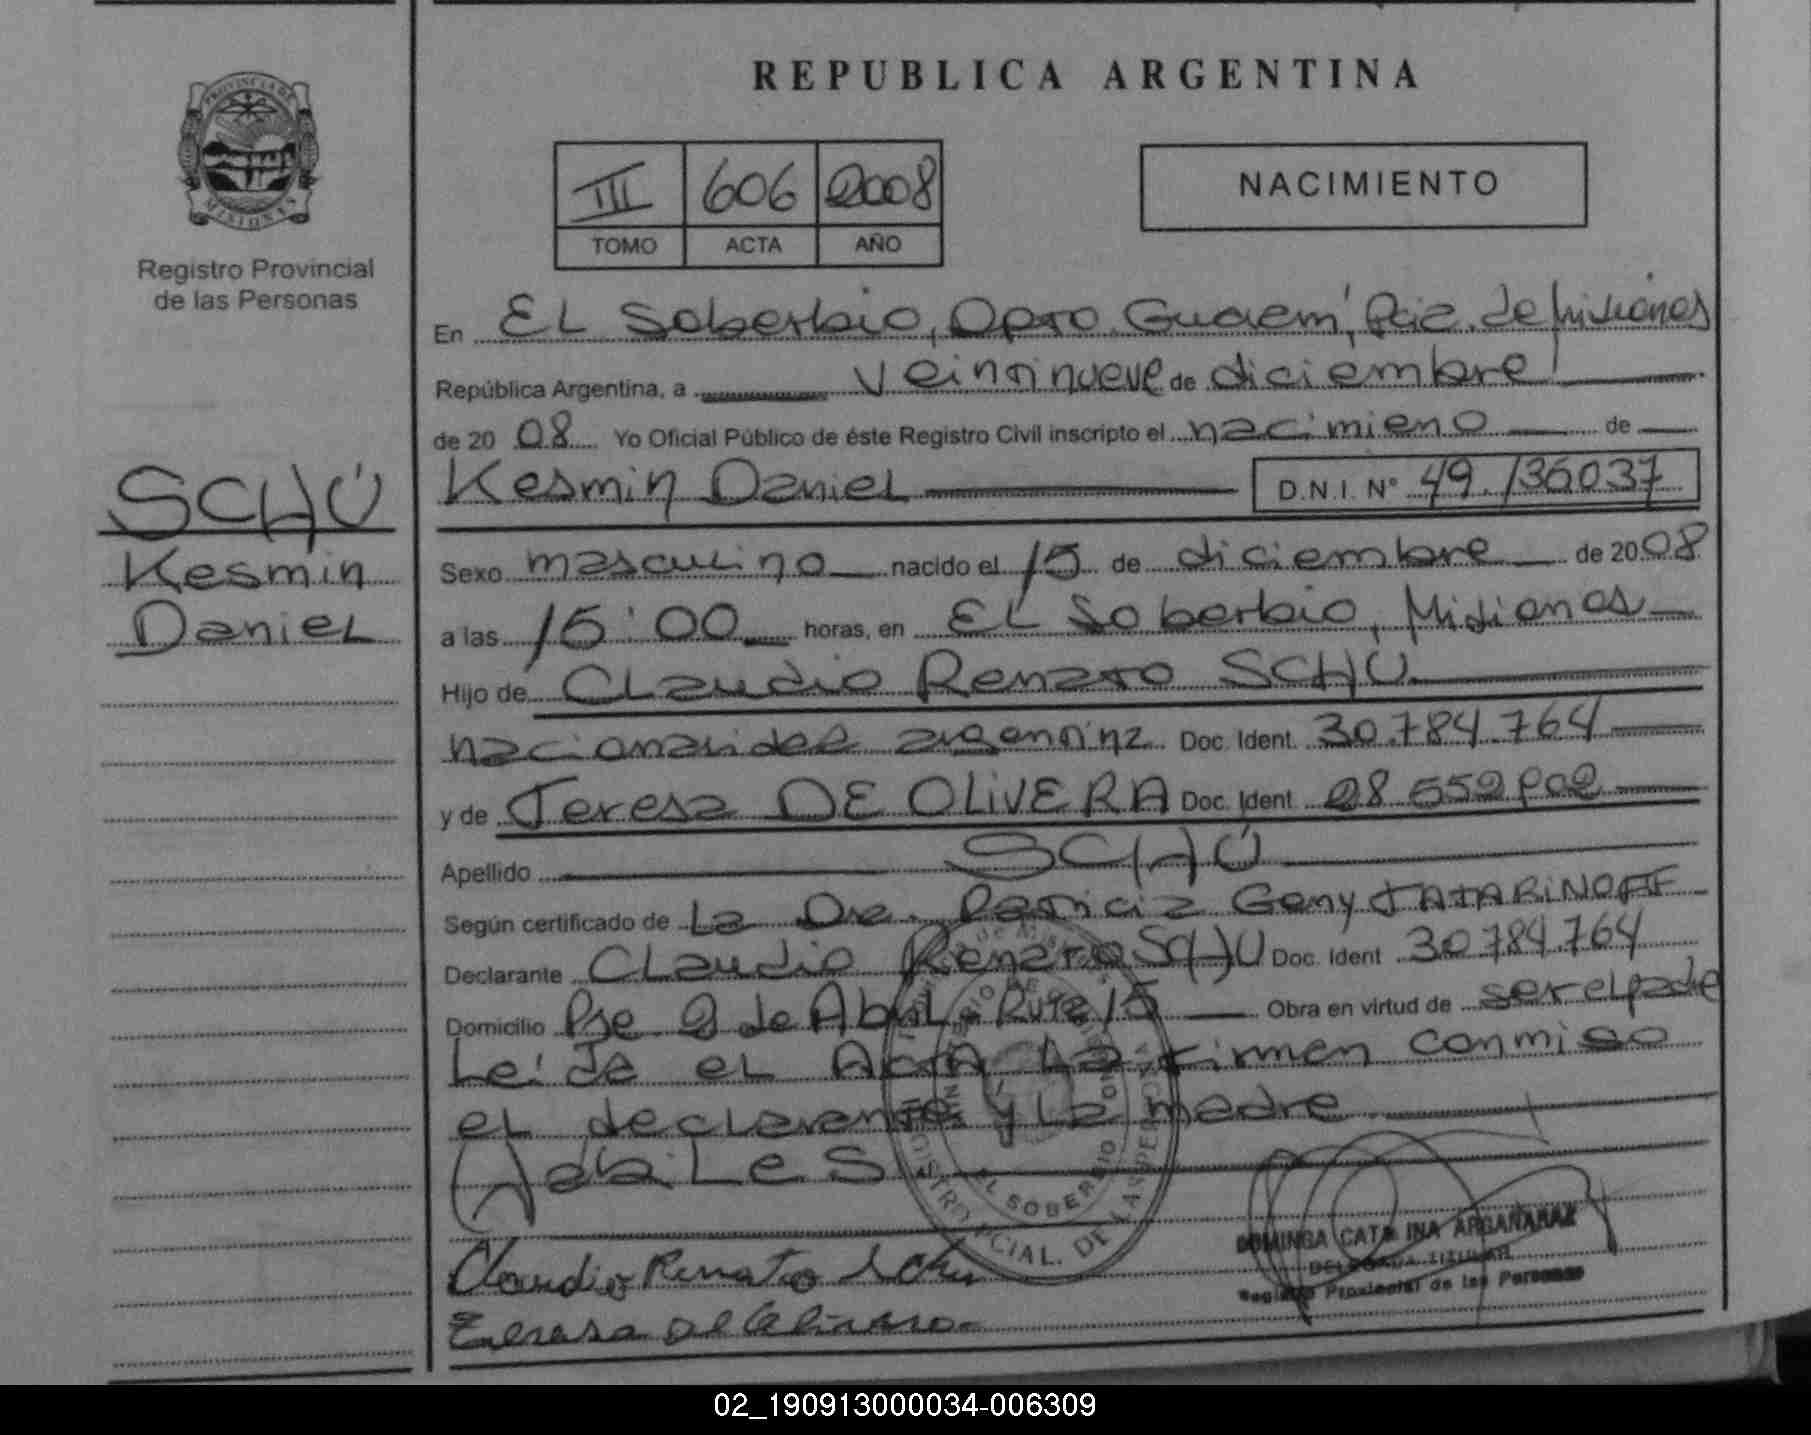 PROVINCIA DE
MISIONES
Registro Provincial
de las Personas
SCHÚ
Kesmin
Daniel
REPUBLICA ARGENTINA
III 606 2008
TOMO ACTA AÑO
NACIMIENTO
En EL Soberbio, Dpto Guaraní, Pcia. de Misiones
República Argentina, a veintinueve de diciembre
de 2008 Yo Oficial Público de éste Registro Civil inscripto el nacimieno de
Kesmin Daniel D.N.I. N° 49.136037
Sexo masculino nacido el 15 de diciembre de 2008
a las 15:00 horas, en EL Soberbio, Misiones
Hijo de Claudio Renato SCHÚ
nacionalidad argentina Doc. Ident. 30.784.764
y de Teresa DE OLIVERA Doc. Ident. 28.552.902
Apellido SCHÚ
Según certificado de La Dra. Patricia Geny TATARINOFF
Declarante Claudio Renato SCHÚ Doc. Ident 30784.764
Domicilio Pje 2 de Abril - Ruta 15 Obra en virtud de ser el padre
Leída el Acta La firman conmigo
el declarante y la madre
Habiles
EL SOBERBIO
Claudio Renato Schu
DOMINGA CATALINA ARGAÑARAZ
DELEGADA TITULAR
Registro Provincial de las Personas
02_190913000034-006309